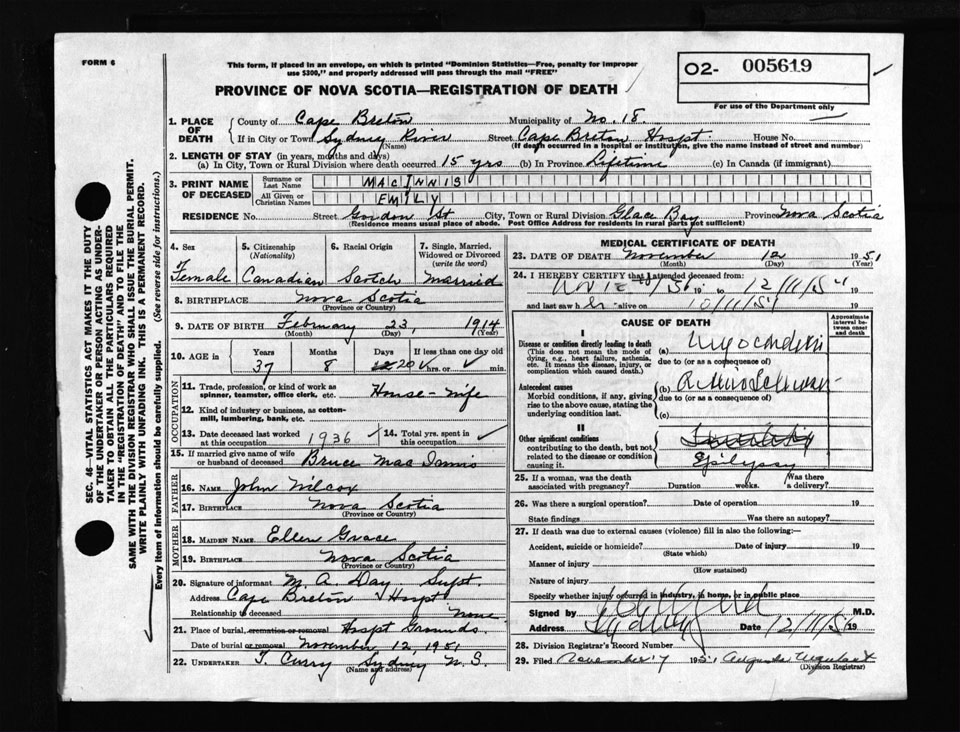 FORM 6
This form, if placed in an envelope, on which is printed "Dominion Statistics—Free, penalty for improper
use $300," and properly addressed will pass through the mail "FREE"
PROVINCE OF NOVA SCOTIA—REGISTRATION OF DEATH
O2- 005619
For use of the Department only
SEC. 46—VITAL STATISTICS ACT MAKES IT THE DUTY
OF THE UNDERTAKER OR PERSON ACTING AS UNDER-
TAKER TO OBTAIN ALL THE PARTICULARS REQUIRED
IN THE "REGISTRATION OF DEATH" AND TO FILE THE
SAME WITH THE DIVISION REGISTRAR WHO SHALL ISSUE THE BURIAL PERMIT.
WRITE PLAINLY WITH UNFADING INK. THIS IS A PERMANENT RECORD.
Every item of information should be carefully supplied. (See reverse side for instructions.)
1. PLACE OF DEATH
County of Cape Breton Municipality of No. 18.
If in City or Town Sydney River (Name) Street Cape Breton Hospt. House No.
(If death occurred in a hospital or institution, give the name instead of street and number)
2. LENGTH OF STAY (in years, months and days)
(a) In City, Town or Rural Division where death occurred 15 yrs (b) In Province Lifetime (c) In Canada (if immigrant)
3. PRINT NAME OF DECEASED
Surname or Last Name MACINNIS
All Given or Christian Names EMILY
RESIDENCE No. Street Gordon St City, Town or Rural Division Glace Bay Province Nova Scotia
(Residence means usual place of abode. Post Office Address for residents in rural parts not sufficient)
4. Sex
F
Female
5. Citizenship (Nationality)
Canadian
6. Racial Origin
Scotch
7. Single, Married, Widowed or Divorced (write the word)
Married
8. BIRTHPLACE Nova Scotia
(Province or Country)
9. DATE OF BIRTH February 23, 1914
(Month) (Day) (Year)
10. AGE in Years Months Days If less than one day old
37 8 20 hrs. or min.
OCCUPATION
11. Trade, profession, or kind of work as
spinner, teamster, office clerk, etc. House-wife
12. Kind of industry or business, as cotton-
mill, lumbering, bank, etc.
13. Date deceased last worked at this occupation 1936
14. Total yrs. spent in this occupation
15. If married give name of wife
or husband of deceased Bruce Mac Innis
FATHER
16. NAME John Wilcox
17. BIRTHPLACE Nova Scotia
(Province or Country)
MOTHER
18. MAIDEN NAME Ellen Grace
19. BIRTHPLACE Nova Scotia
(Province or Country)
20. Signature of informant M. A. Day Supt.
Address Cape Breton Hospt
Relationship to deceased None
21. Place of burial, cremation or removal Hospt Grounds.
Date of burial or removal November 12, 1951
22. UNDERTAKER T. Curry Sydney N. S.
(Name and address)
MEDICAL CERTIFICATE OF DEATH
23. DATE OF DEATH November 12 1951
(Month) (Day) (Year)
24. I HEREBY CERTIFY that I attended deceased from
19 to 12/11/51
and last saw h er alive on 10/11/51
CAUSE OF DEATH
Approximate interval between onset and death
I
Disease or condition directly leading to death
(This does not mean the mode of
dying, e.g., heart failure, asthenia,
etc. It means the disease, injury, or
complication which caused death.)
(a) Myocarditis
due to (or as a consequence of)
Antecedent causes
Morbid conditions, if any, giving
rise to the above cause, stating the
underlying condition last.
(b)
due to (or as a consequence of)
(c)
II
Other significant conditions
contributing to the death, but not
related to the disease or condition
causing it.
Epilepsy
25. If a woman, was the death associated with pregnancy? Duration weeks. Was there a delivery?
26. Was there a surgical operation? Date of operation 19
State findings Was there an autopsy?
27. If death was due to external causes (violence) fill in also the following:—
Accident, suicide or homicide? Date of injury 19
(State which)
Manner of injury
(How sustained)
Nature of injury
Specify whether injury occurred in industry, in home, or in public place
Signed by M.D.
Address Sydney Date 12/11/51 19
28. Division Registrar's Record Number
29. Filed November 17 1951 Augusta Urquhart
(Division Registrar)